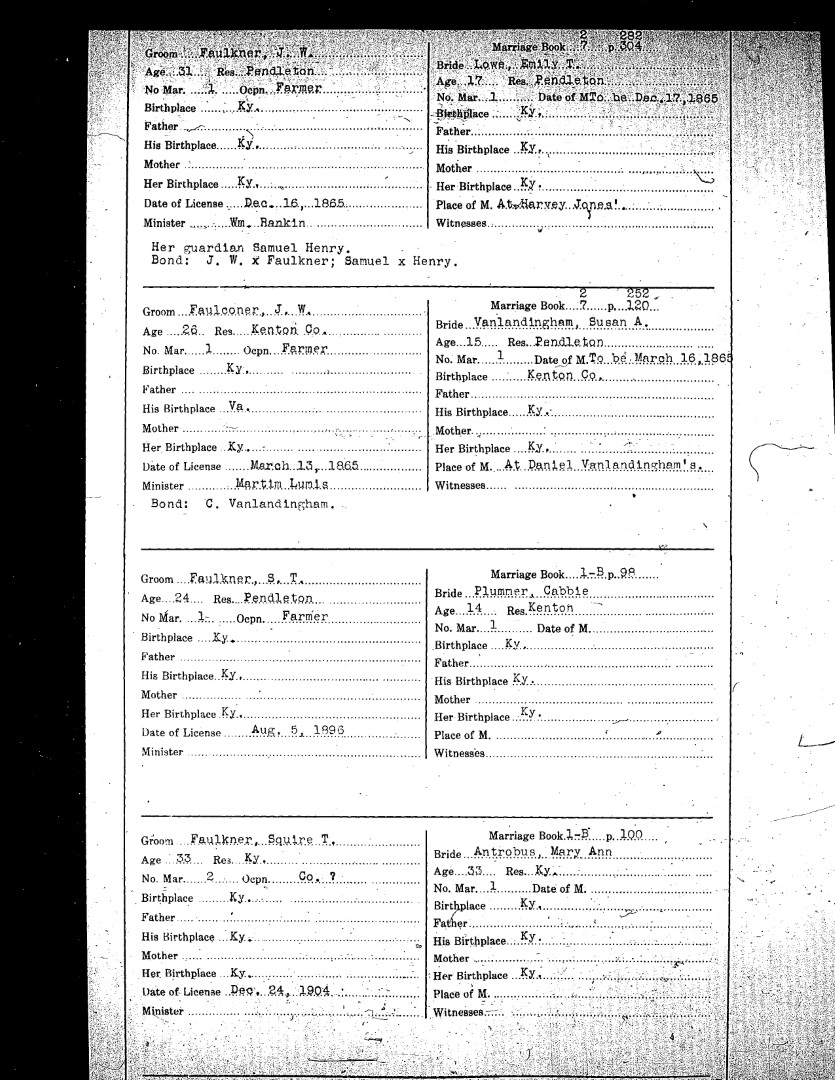 2 282
Groom Faulkner, J. W. Marriage Book 7 p. 304
Age 31 Res. Pendleton Bride Lowe, Emily T.
No Mar. 1 Ocpn. Farmer Age 17 Res. Pendleton
Birthplace Ky. No. Mar. 1 Date of M To be Dec. 17, 1865
Father Birthplace Ky.
His Birthplace Ky. Father
Mother His Birthplace Ky.
Her Birthplace Ky. Mother
Date of License Dec. 16, 1865 Her Birthplace Ky.
Minister Wm. Rankin Place of M. At Harvey Jones'.
Witnesses
Her guardian Samuel Henry.
Bond: J. W. x Faulkner; Samuel x Henry.
2 252
Groom Faulconer, J. W. Marriage Book 7 p. 120
Age 26 Res. Kenton Co. Bride Vanlandingham, Susan A.
No. Mar. 1 Ocpn. Farmer Age 15 Res. Pendleton
Birthplace Ky. No. Mar. 1 Date of M. To be March 16, 1865
Father Birthplace Kenton Co.
His Birthplace Va. Father
Mother His Birthplace Ky.
Her Birthplace Ky. Mother
Date of License March 13, 1865 Her Birthplace Ky.
Minister Martim Lumis Place of M. At Daniel Vanlandingham's.
Witnesses
Bond: C. Vanlandingham.
Groom Faulkner, S. T. Marriage Book 1-B p. 98
Age 24 Res. Pendleton Bride Plummer, Cabbie
No Mar. 1 Ocpn. Farmer Age 14 Res. Kenton
Birthplace Ky. No. Mar. 1 Date of M.
Father Birthplace Ky.
His Birthplace Ky. Father
Mother His Birthplace Ky.
Her Birthplace Ky. Mother
Date of License Aug. 5, 1896 Her Birthplace Ky.
Minister Place of M.
Witnesses
Groom Faulkner, Squire T. Marriage Book 1-B p. 100
Age 33 Res. Ky. Bride Antrobus, Mary Ann
No. Mar. 2 Ocpn. Co. ? Age 33 Res. Ky.
Birthplace Ky. No. Mar. 1 Date of M.
Father Birthplace Ky.
His Birthplace Ky. Father
Mother His Birthplace Ky.
Her Birthplace Ky. Mother
Date of License Dec. 24, 1904 Her Birthplace Ky.
Minister Place of M.
Witnesses